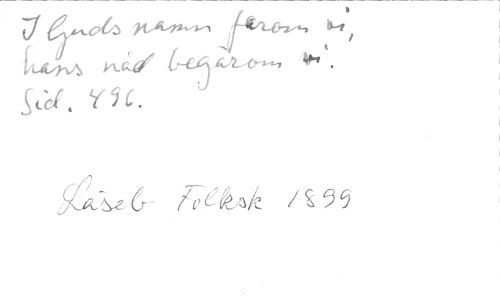 I Guds namn farom vi,
hans nåd begärom vi.
Sid. 496.
Läseb Folksk 1899